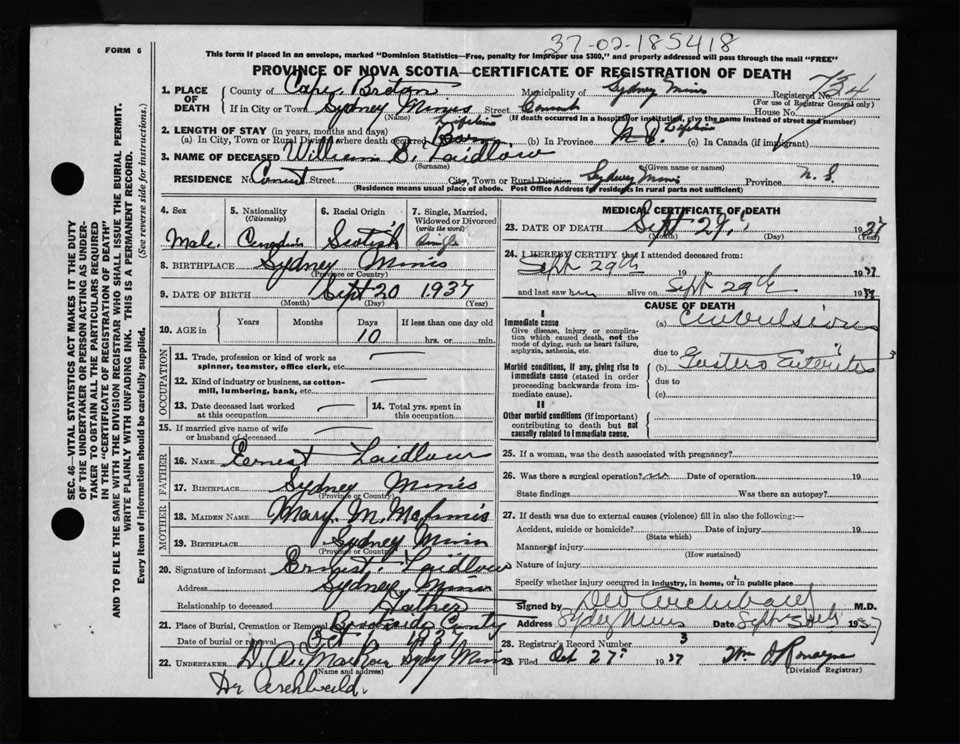 37-02-185418
FORM 6
This form if placed in an envelope, marked "Dominion Statistics—Free, penalty for improper use $300," and properly addressed will pass through the mail "FREE"
PROVINCE OF NOVA SCOTIA—CERTIFICATE OF REGISTRATION OF DEATH
SEC. 46—VITAL STATISTICS ACT MAKES IT THE DUTY
OF THE UNDERTAKER OR PERSON ACTING AS UNDER-
TAKER TO OBTAIN ALL THE PARTICULARS REQUIRED
IN THE "CERTIFICATE OF REGISTRATION OF DEATH"
AND TO FILE THE SAME WITH THE DIVISION REGISTRAR WHO SHALL ISSUE THE BURIAL PERMIT.
WRITE PLAINLY WITH UNFADING INK. THIS IS A PERMANENT RECORD.
Every item of information should be carefully supplied. (See reverse side for instructions.)
1. PLACE OF DEATH County of Cape Breton Municipality of Sydney Mines Registered No. 734
(For use of Registrar General only)
If in City or Town Sydney Mines Street Convent House No.
(Name) (If death occurred in a hospital or institution, give the name instead of street and number)
2. LENGTH OF STAY (in years, months and days) Lifetime
(a) In City, Town or Rural Division where death occurred (b) In Province N.S. Lifetime (c) In Canada (if immigrant)
3. NAME OF DECEASED William S. Laidlaw
(Surname) (Given name or names)
RESIDENCE No. Convent Street City, Town or Rural Division Sydney Mines Province N. S.
(Residence means usual place of abode. Post Office Address for residents in rural parts not sufficient)
4. Sex Male
5. Nationality (Citizenship) Canadian
6. Racial Origin Scotish
7. Single, Married, Widowed or Divorced (write the word) Single
8. BIRTHPLACE Sydney Mines
(Province or Country)
9. DATE OF BIRTH Sept 20 1937
(Month) (Day) (Year)
10. AGE in Years Months Days 10 If less than one day old hrs. or min.
OCCUPATION
11. Trade, profession or kind of work as spinner, teamster, office clerk, etc. —
12. Kind of industry or business, as cotton-mill, lumbering, bank, etc. —
13. Date deceased last worked at this occupation —
14. Total yrs. spent in this occupation
15. If married give name of wife or husband of deceased —
FATHER
16. NAME Ernest Laidlaw
17. BIRTHPLACE Sydney Mines
(Province or Country)
MOTHER
18. MAIDEN NAME Mary M. McInnis
19. BIRTHPLACE Sydney Mines
(Province or Country)
20. Signature of informant Ernest Laidlaw
Address Sydney Mines
Relationship to deceased Father
21. Place of Burial, Cremation or Removal Brookside County
Date of burial or removal Oct 1 1937
22. UNDERTAKER Sydy Mines
(Name and address)
Dr Archibald.
MEDICAL CERTIFICATE OF DEATH
23. DATE OF DEATH Sept 29 1937
(Month) (Day) (Year)
24. I HEREBY CERTIFY that I attended deceased from:
Sept 29th 19 to 1937
and last saw him alive on Sept 29th 1937
CAUSE OF DEATH
I
Immediate cause
Give disease, injury or complication which caused death, not the mode of dying, such as heart failure, asphyxia, asthenia, etc.
(a) Convulsions
due to
Morbid conditions, if any, giving rise to immediate cause (stated in order proceeding backwards from immediate cause).
(b) Gastro Enteritis
due to
(c)
II
Other morbid conditions (if important) contributing to death but not causally related to immediate cause.
25. If a woman, was the death associated with pregnancy?
26. Was there a surgical operation? no Date of operation 19
State findings Was there an autopsy?
27. If death was due to external causes (violence) fill in also the following:—
Accident, suicide or homicide? Date of injury 19
(State which)
Manner of injury
(How sustained)
Nature of injury
Specify whether injury occurred in industry, in home, or in public place
Signed by Archibald M.D.
Address Sydney Mines Date Sept 30th 1937
28. Registrar's Record Number 3
29. Filed Oct 27 1937
(Division Registrar)